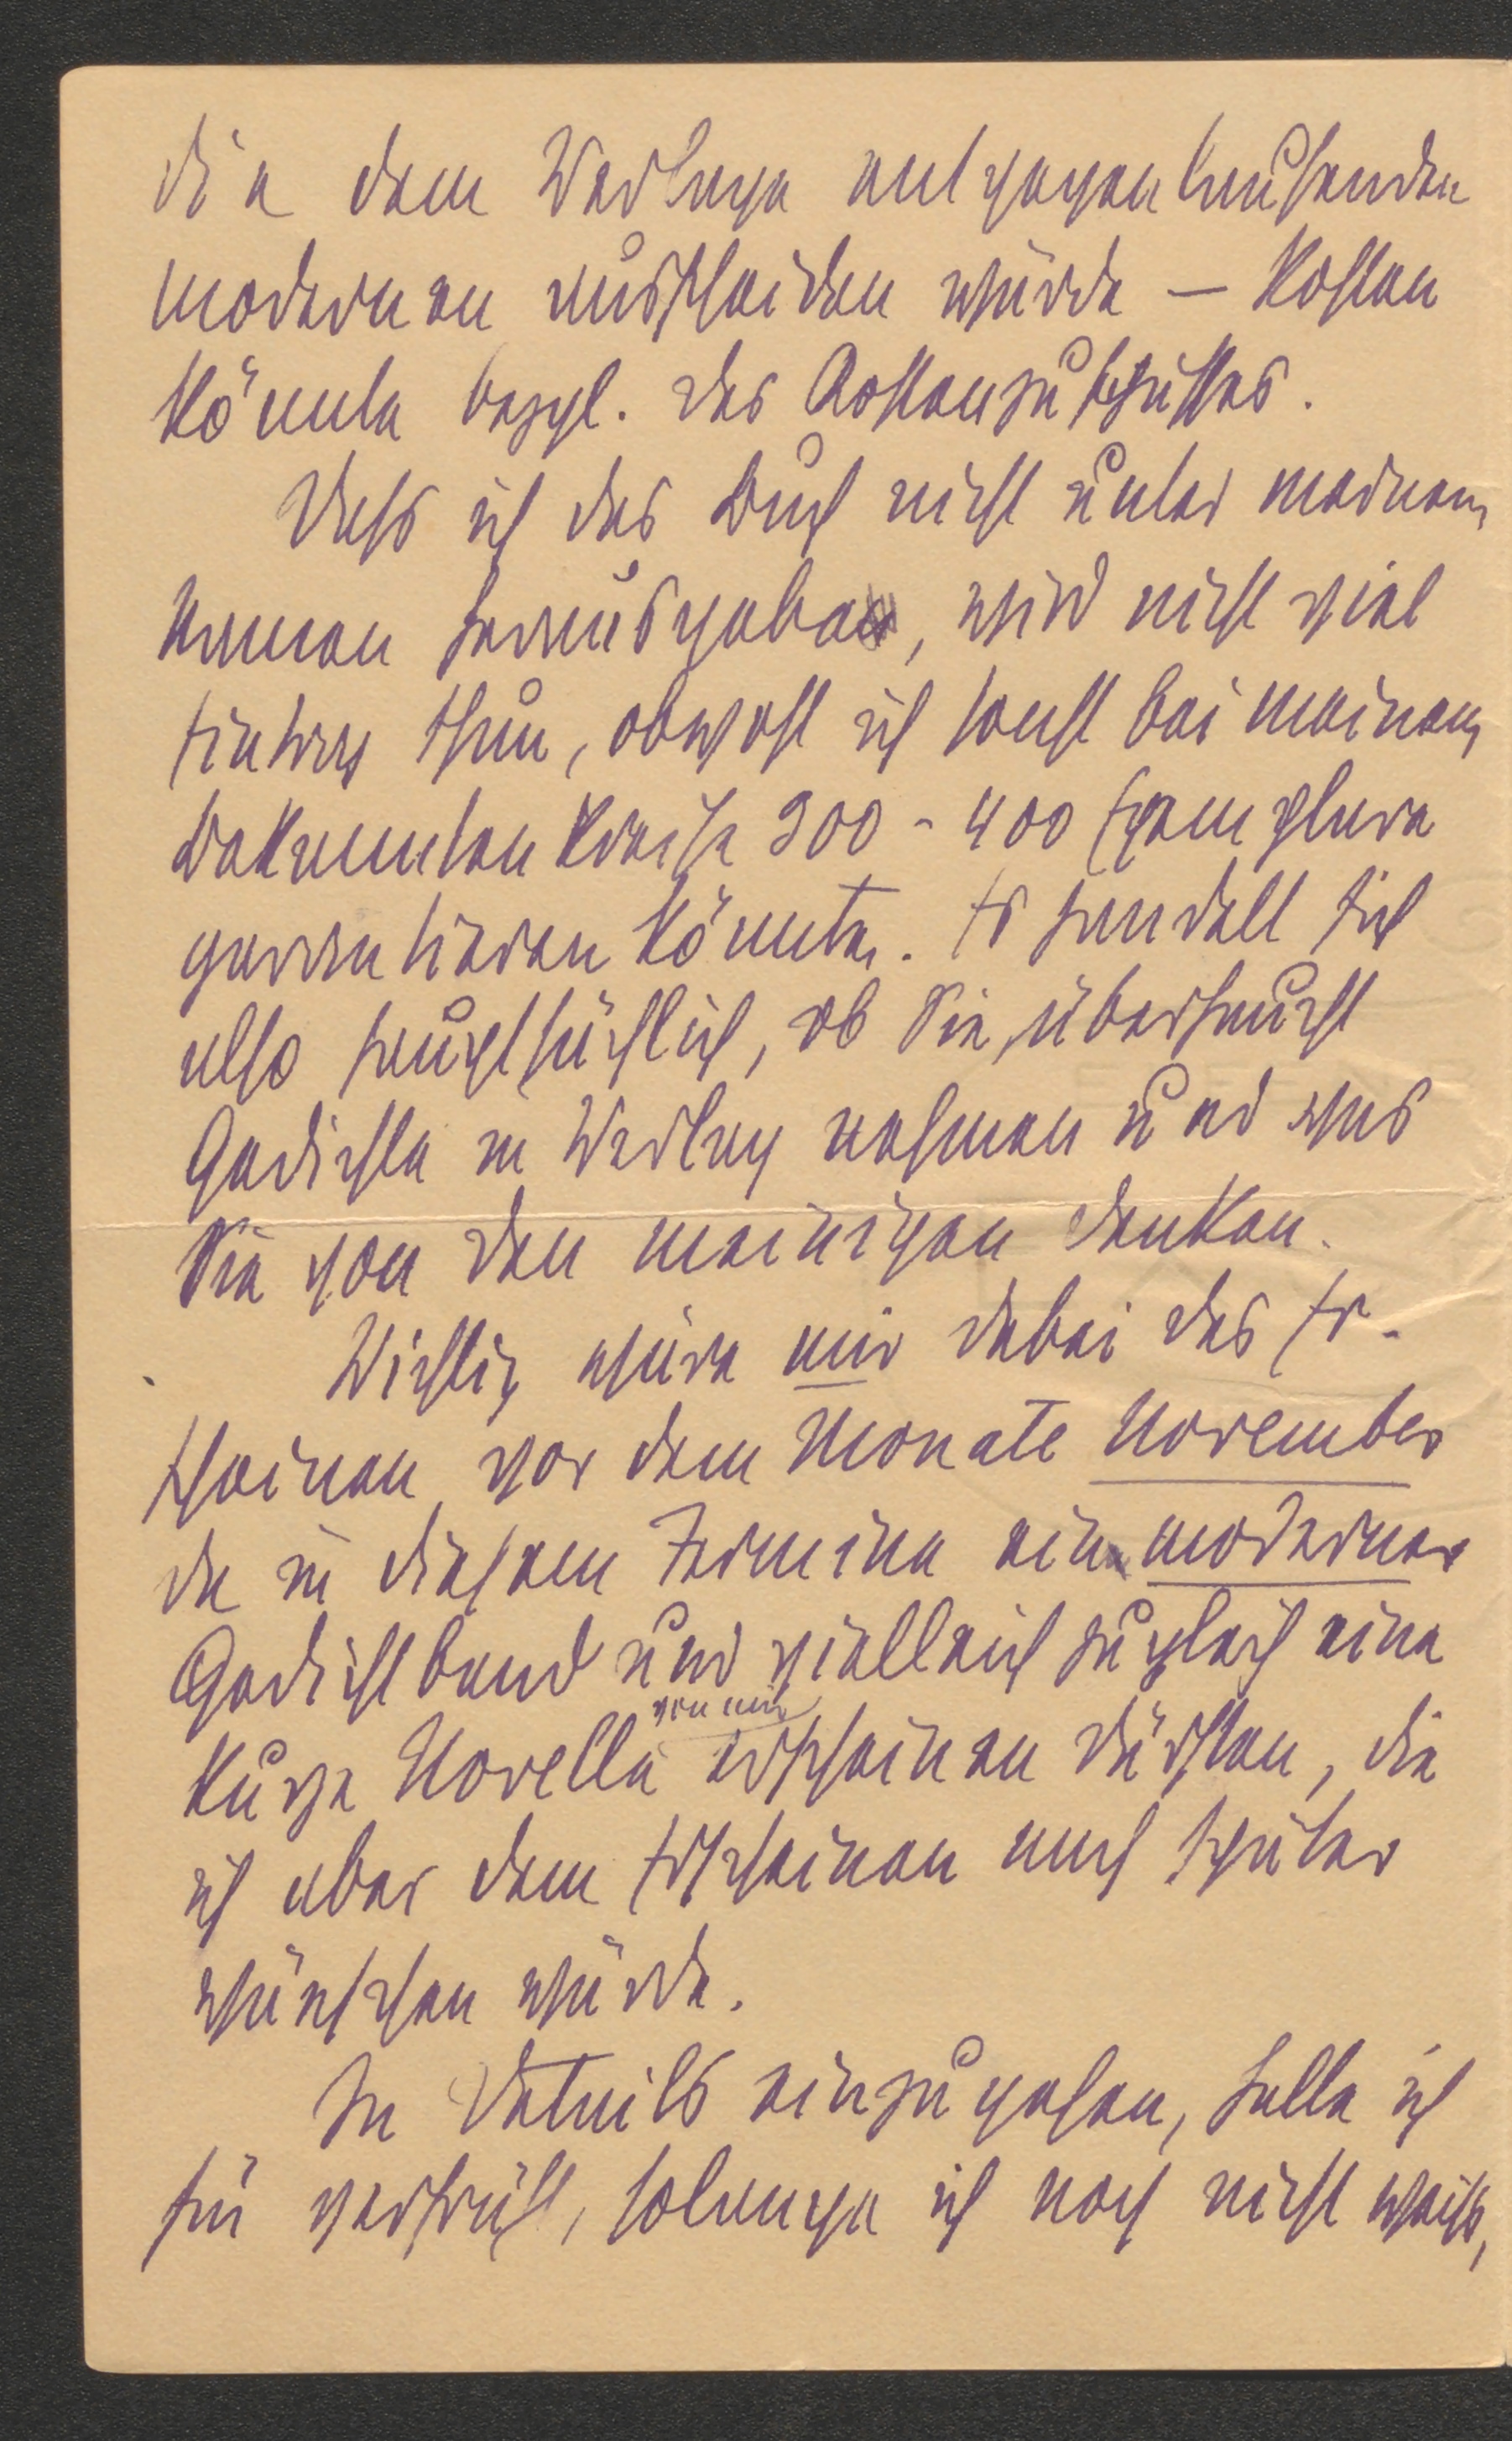 die dem Verlage entgegenlaufenden
modernen ausscheiden würde – kosten
könnte bezgl. des Kostenzuschusses.
Dass ich das Buch nicht unter meinem
Namen herausgebe, wird nicht viel
Eintrag thun, obwohl ich sonst bei meinem
Bekanntenkreise 300 - 400 Exemplare
garrentieren könnte. Es handelt sich
also hauptsächlich, ob Sie überhaupt
Gedichte in Verlag nehmen und was
Sie von den meinigen denken.
Wichtig wäre mir dabei das Er-
scheinen vor dem Monate November
da in diesem Termine ein moderner
Gedichtband und vielleich zugleich eine
kurze Novelle von mir erscheinen dürften, die
ich aber dem Erscheinen nach später
wünschen würde.
In Details einzugehen, halte ich
für verfrüht, solange ich noch nicht weiß,